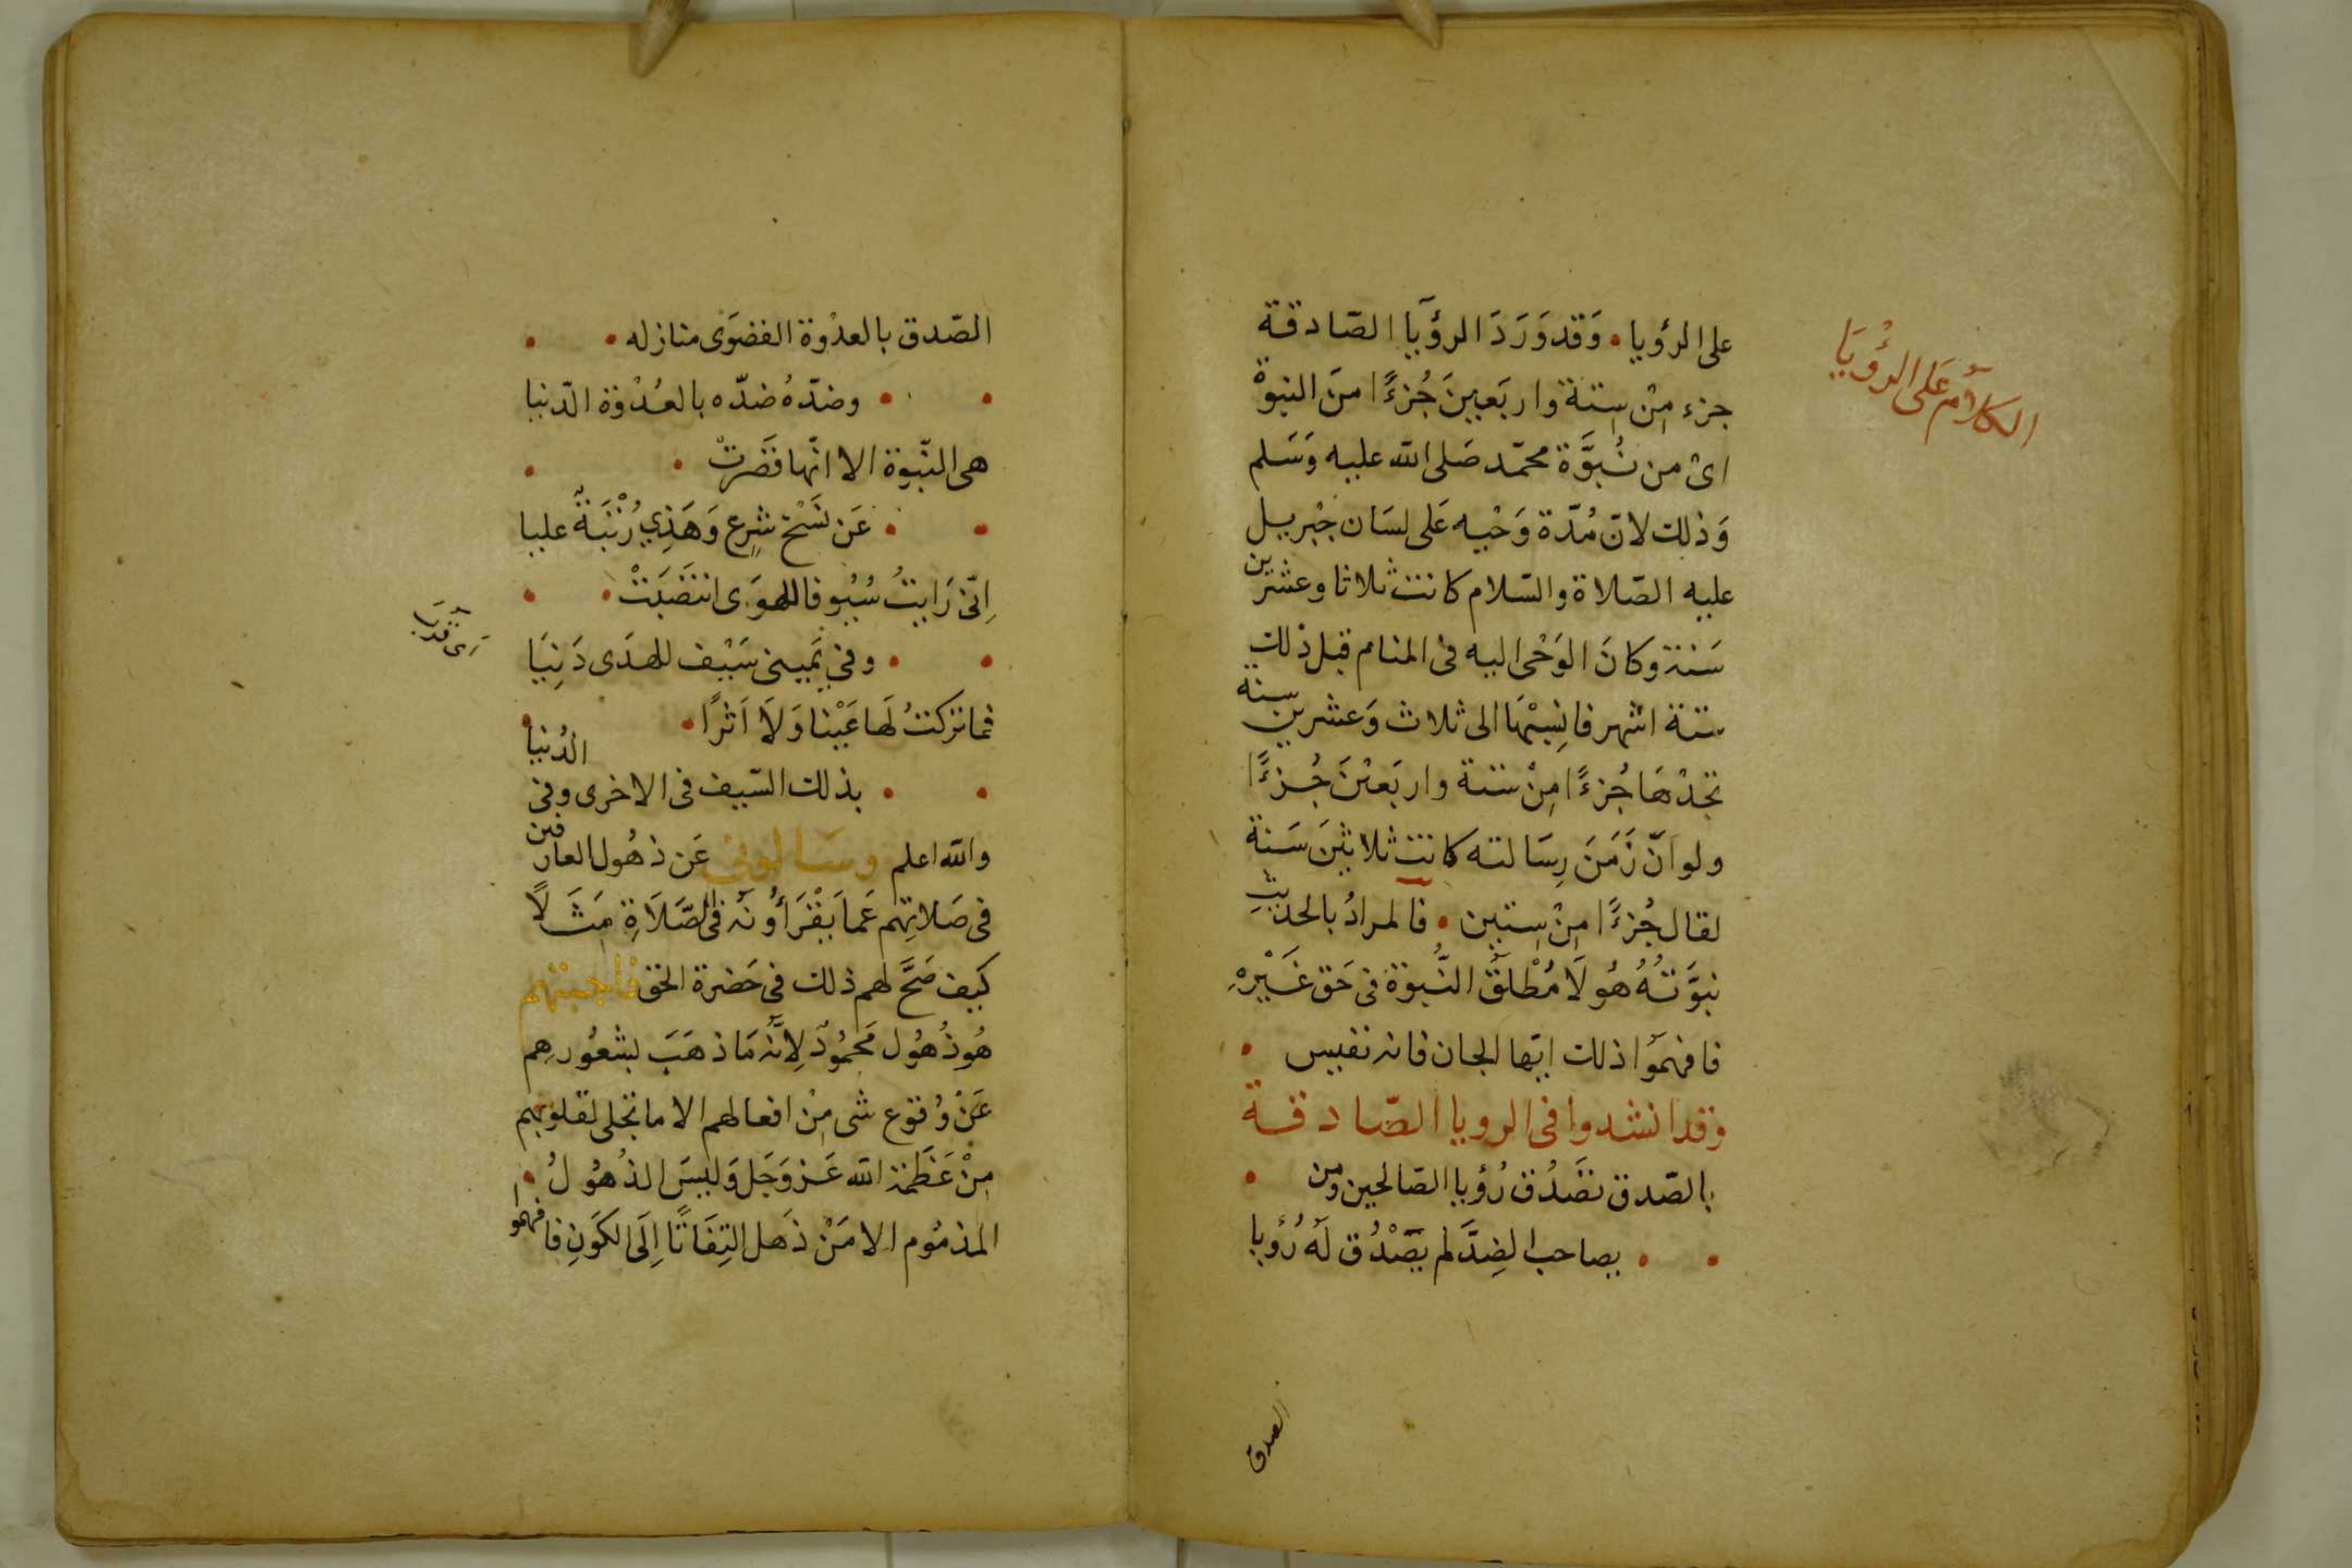 الكلام على الرؤيا
على الرؤيا • وَقد وَرَدَ الرؤيا الصّادقة
جزء مِنْ سِتة واربَعينَ جُزءًا منَ النبوة
اىْ من نُبُوَّة محمّد صَلى الله عليه وَسَلم
وَذلك لانّ مُدّة وَحْيه عَلى لسَان جبْريل
عليه الصّلاة والسّلام كانت ثلاثا وعشرين
سَنة وكانَ الوَحْى اليه فى المنام قبل ذلك
ستة اشهر فانسِبْهَا الى ثلاث وَعشرين سنة
تجدْهَا جُزءًا مِنْ ستة واربَعيْنَ جُزءًا
ولو انّ زَمَنَ رِسَالته كانت ثلاثيْنَ سَنة
لقال جُزءًا مِنْ سِتين • فالمرادُ بالحديثِ
نبوَّتُهُ هُو لَا مُطْلَقُ النُبوة فى حَق غَيْرِهِ
فافهمُوا ذلك ايّها الجان فانه نفيس •
وقد انشدوا فى الرويا الصّادقة
بالصّدق تصَدُق رُؤيا الصّالحين ومن •
• • يصاحب الضِدَّ لم يصْدُق لَهُ رُؤيا
الصدق
الصّدق بالعدْوة القصْوَى منازله • •
• • وضدّهُ ضدّه بالعُدْوة الدّنيا
هى النّبوة الا انّها قَصَرتْ • •
• • عَن نَسْخ شرِع وَهَذِي رُتْبَةٌ عليا
اِنّى رَايتُ سُيُوفا للهوَى انتَضَيَتْ • •
• • وفى يَمينى سَيْف للهدَى دَنِيَا
فما تركتُ لَها عَيْنا وَلَا اَثرًا • •
• • بذلك السّيف فى الاخرى وفى الدُنيا
والله اعلم وسَالونى عَن ذهُول العارفين
فى صَلاتِهم عَما يَقْرَأُونَه فى الصَّلَاةِ مَثَلًا
كَيف صَحَّ لهم ذلك فى حَضرة الحق فاجبتهم
هُو ذُهُول مَحمُودٌ لِانَّهُ مَا ذهَبَ بشعُورهِم
عَنْ وُقوع شى مِنْ افعالهم الا ما تجلى لقلوبهم
مِنْ عَظَمة الله عَز وَجَل وَليسَ الذُهُولُ •
المذمُوم الا مَنْ ذَهل التِفَاتًا اِلَى الكَونِ فافهموا